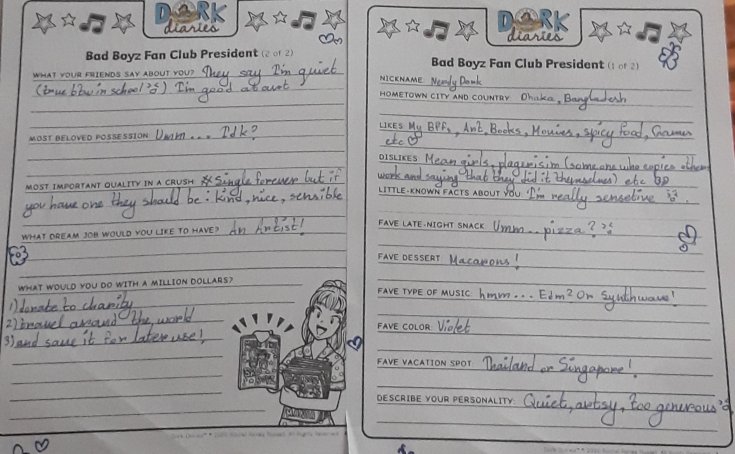 DORK
diaries
Bad Boyz Fan Club President (2 of 2)
WHAT YOUR FRIENDS SAY ABOUT YOU? They say I'm quiet
(true btw in school) I'm good at art
MOST BELOVED POSSESSION: Umm... Idk?
MOST IMPORTANT QUALITY IN A CRUSH * Single forever but if
you have one they should be : kind, nice, sensible
WHAT DREAM JOB WOULD YOU LIKE TO HAVE? An Artist!
WHAT WOULD YOU DO WITH A MILLION DOLLARS?
1) donate to charity
2) travel around the world
3) and save it for later use!
DORK
diaries
Bad Boyz Fan Club President (1 of 2)
NICKNAME Nerdy Dork
HOMETOWN CITY AND COUNTRY: Dhaka, Bangladesh
LIKES: My BFFs, Art, Books, Movies, spicy food, Games
etc
DISLIKES: Mean girls, plagurisim (someone who copies others
work and saying that they did it themselves) etc
LITTLE-KNOWN FACTS ABOUT YOU I'm really sensetive
FAVE LATE-NIGHT SNACK Umm.. pizza?
FAVE DESSERT: Macarons!
FAVE TYPE OF MUSIC: hmm... Edm? Or Synthwave!
FAVE COLOR: Violet
FAVE VACATION SPOT: Thailand or Singapore!
DESCRIBE YOUR PERSONALITY: Quiet, artsy, too generous